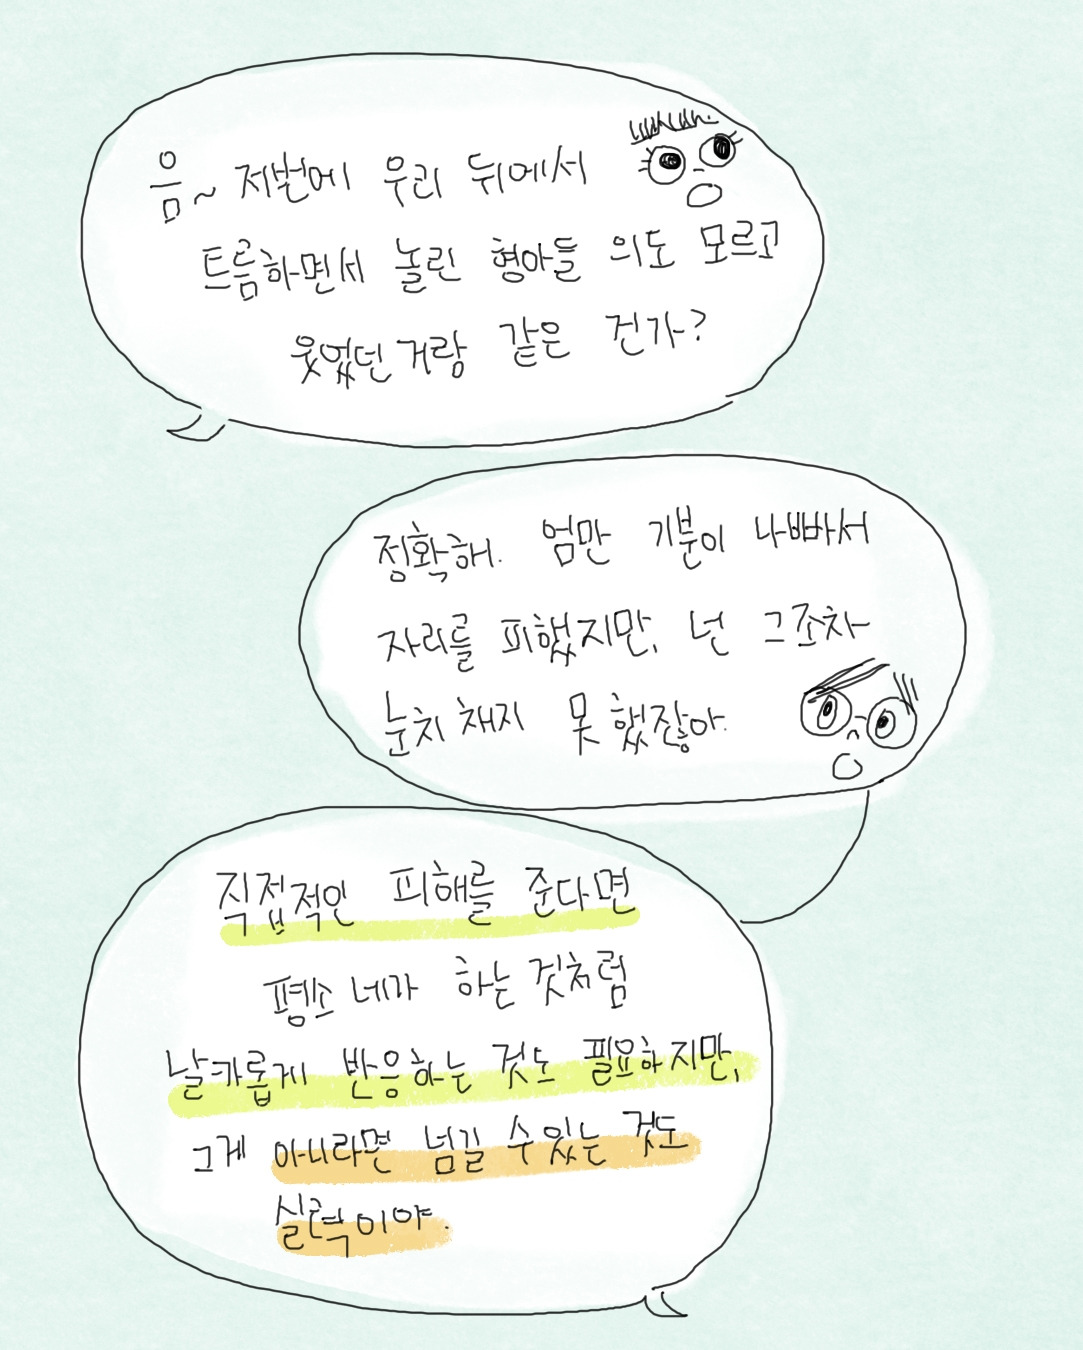 음~ 저번에 우리 뒤에서
트름하면서 놀린 형아들 의도 모르고
웃었던거랑 같은 건가?
정확해. 엄만 기분이 나빠서
자리를 피했지만, 넌 그조차
눈치 채지 못했잖아.
직접적인 피해를 준다면
평소 네가 하는 것처럼
날카롭게 반응하는 것도 필요하지만,
그게 아니라면 넘길 수 있는 것도
실력이야.